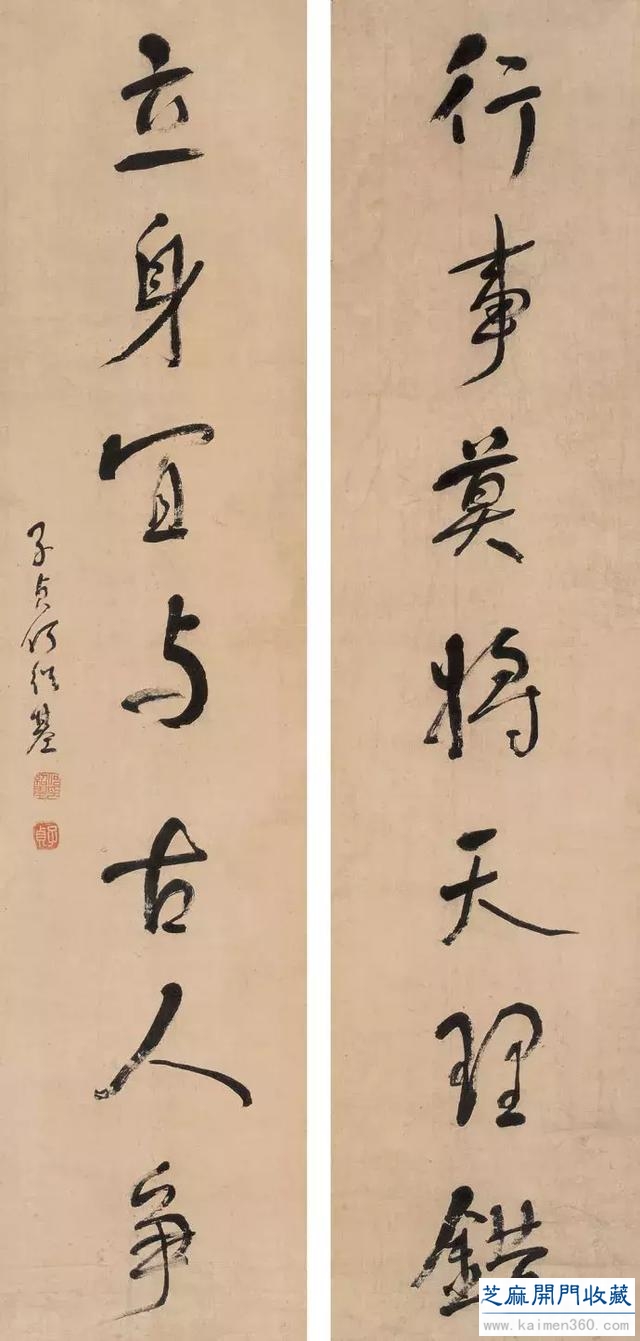 行事莫將天理錯
立身宜与古人爭
子貞何紹基
子貞
芝麻開門收藏
www.kaimen360.com